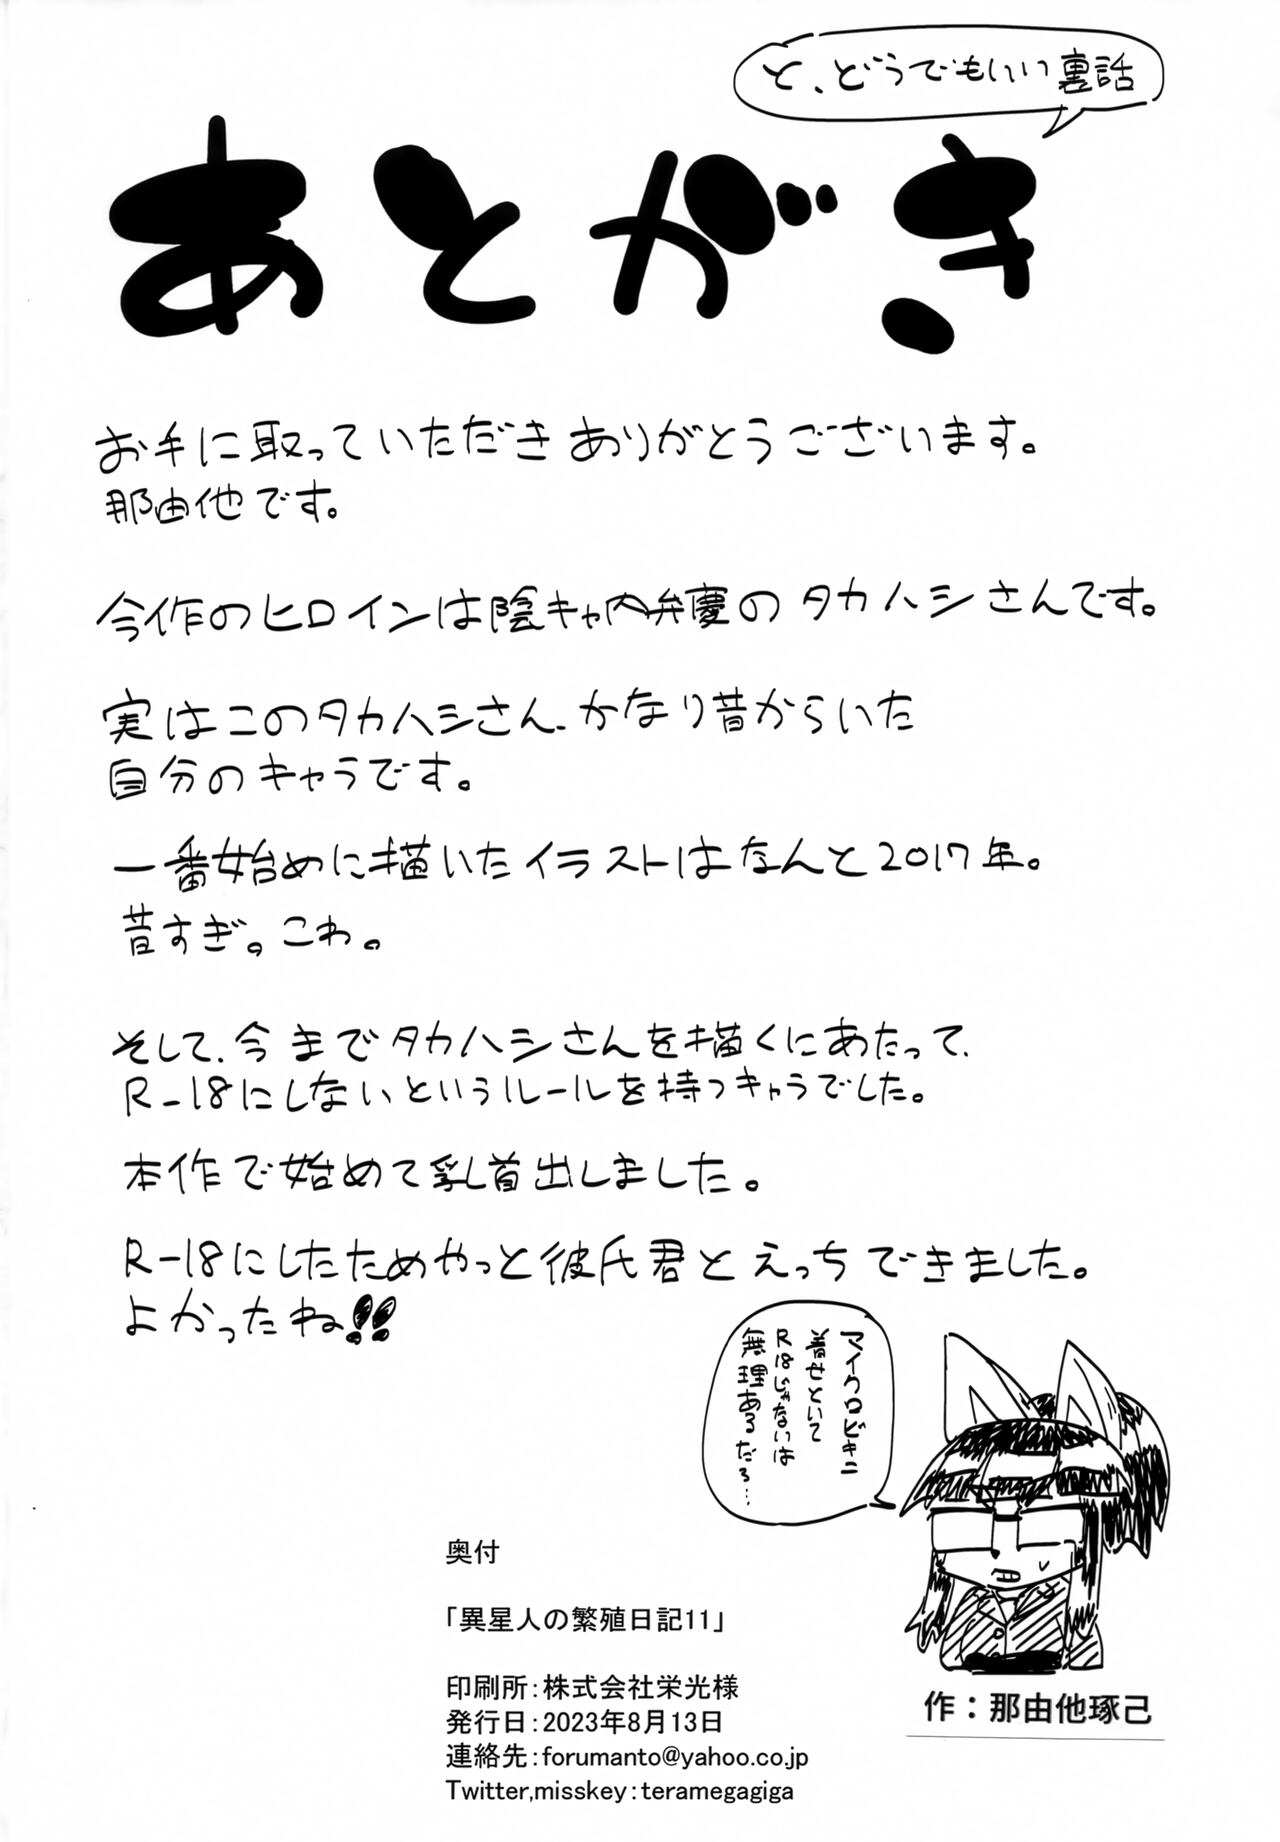 と、どうでもいい裏話
あとがき
お手に取っていただきありがとうございます。
那由他です。
今作のヒロインは陰キャ内弁慶のタカハシさんです。
実はこのタカハシさん、かなり昔からいた
自分のキャラです。
一番始めに描いたイラストはなんと2017年。
昔すぎ。こわ。
そして、今までタカハシさんを描くにあたって、
R-18にしないというルールを持つキャラでした。
本作で始めて乳首出しました。
R-18にしたためやっと彼氏君とえっちできました。
よかったね!!
マイクロビキニ
着せといて
R18じゃないは
無理あるだろ…
奥付
「異星人の繁殖日記11」
印刷所:株式会社栄光様
発行日:2023年8月13日
連絡先:forumanto@yahoo.co.jp
Twitter,misskey:teramegagiga
作:那由他琢己